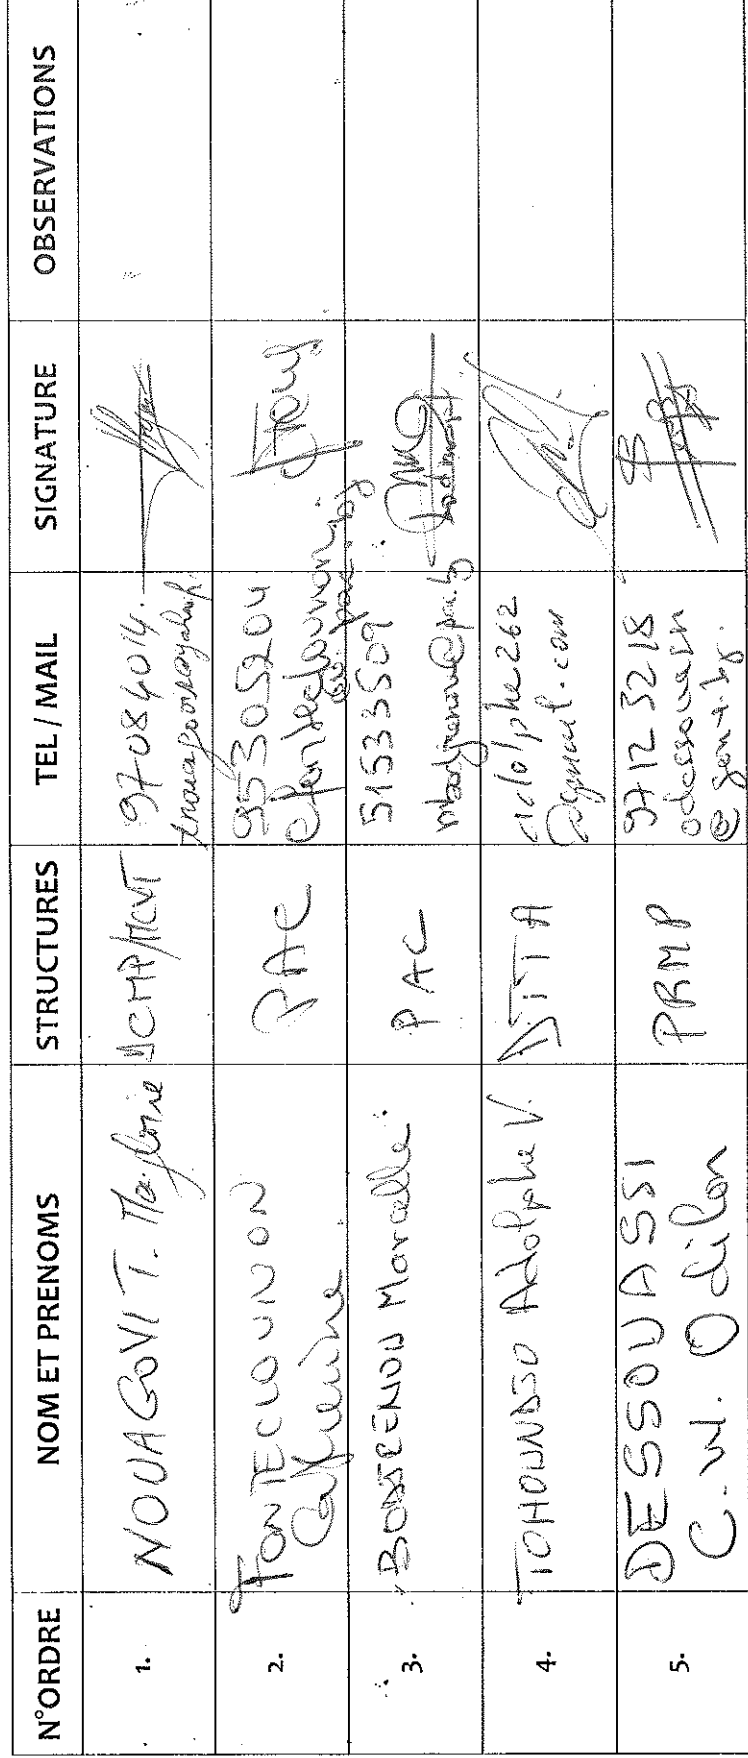 N°ORDRE NOM ET PRENOMS STRUCTURES TEL / MAIL SIGNATURE OBSERVATIONS
1. NOUAGOVI T. DCMP/MCVT 97084014.
2. FONTECLOUNON Catherine PAC 95305204
3. BODJRENOU Marcelle PAC 51533509
4. TOHOUNDJO Adolphe V. DTTA adolphe262
@gmail.com
5. DESSOUASSI PRMP 97123218
C. W. Odilon odessouassi
@gouv.bj.